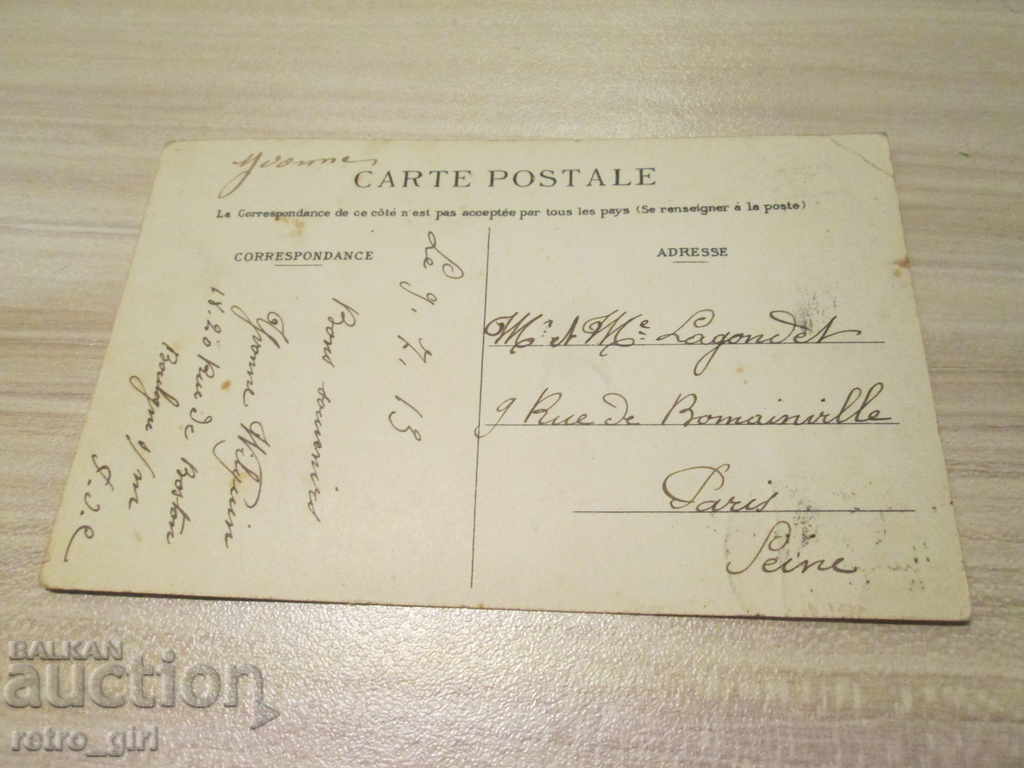 Yvonne
CARTE POSTALE
La Correspondance de ce côté n'est pas acceptée par tous les pays (Se renseigner à la poste)
CORRESPONDANCE
ADRESSE
Le 9. 7. 13
Bons souvenirs
Yvonne
18.20 Rue de Boston
Boulogne s/m
P. d. C
Mr et Me Lagondet
9 Rue de Romainville
Paris
Seine
BALKAN
auction
retro_girl